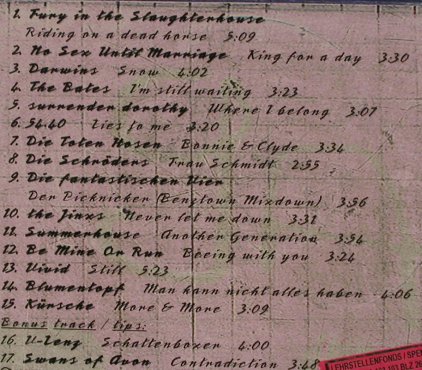 1. Fury in the Slaughterhouse
Riding on a dead horse 5:09
2. No Sex Until Marriage King for a day 3:30
3. Darwins Snow 4:02
4. The Bates I'm still waiting 3:23
5. surrender dorothy Where I belong 3:07
6. 54.40 Lies to me 3:20
7. Die Toten Hosen Bonnie & Clyde 3:34
8. Die Schröders Frau Schmidt 2:55
9. Die fantastischen Vier
Der Picknicker (Benztown Mixdown) 3:56
10. the Jinxs Never let me down 3:31
11. Summerhouse Another Generation 3:54
12. Be Mine Or Run Beeing with you 3:24
13. Vivid Still 5:23
14. Blumentopf Man kann nicht alles haben 4:06
15. Kürsche More & More 3:09
Bonus track / tips:
16. U-Lenz Schattenboxer 4:00
17. Swans of Avon Contradiction 3:48
LEHRSTELLENFONDS / SPEN